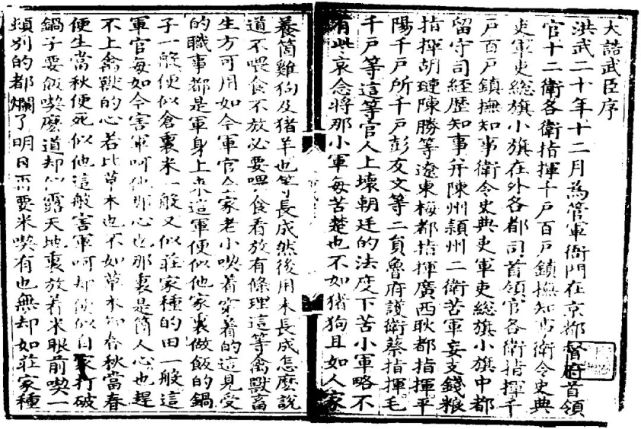 大誥武臣序
洪武二十年十二月為管軍衙門在京都督府首領
官十二衛各衛指揮千戶百戶鎮撫知事衛令史典
吏軍吏總旗小旗在外各都司首領官各衛指揮千
戶百戶鎮撫知事衛令史典吏軍吏總旗小旗中都
留守司經歷知事并陳州潁州二衛苦軍妄支錢粮
指揮胡璉陳勝等遼東梅都指揮廣西耿都指揮平
陽千戶所千戶彭友文等二員魯府護衛蔡指揮毛
千戶等這等官人上壞朝廷的法度下苦小軍略不
有些哀念將那小軍每苦楚也不如猪狗且如人家
養箇雞狗及猪羊也等長成然後用未長成怎麽說
道不喂食不放必要喂食看放有條理這等禽獸畜
生方可用如今軍官全家老小喫着穿着的這見受
的職事都是軍身上來這軍便似他家裏做飯的鍋
子一般便似倉裏米一般又似莊家種的田一般這
軍官每如今害軍呵他那心也那裏是箇人心也趕
不上禽獸的心若比草木也不如草木知春秋當春
便生當秋便死似他這般害軍呵却便似自家打破
鍋子要飯喫麽道却似露天地裏放着米眼前喫一
頓別的都爛了明日再要米喫有也無却如莊家種